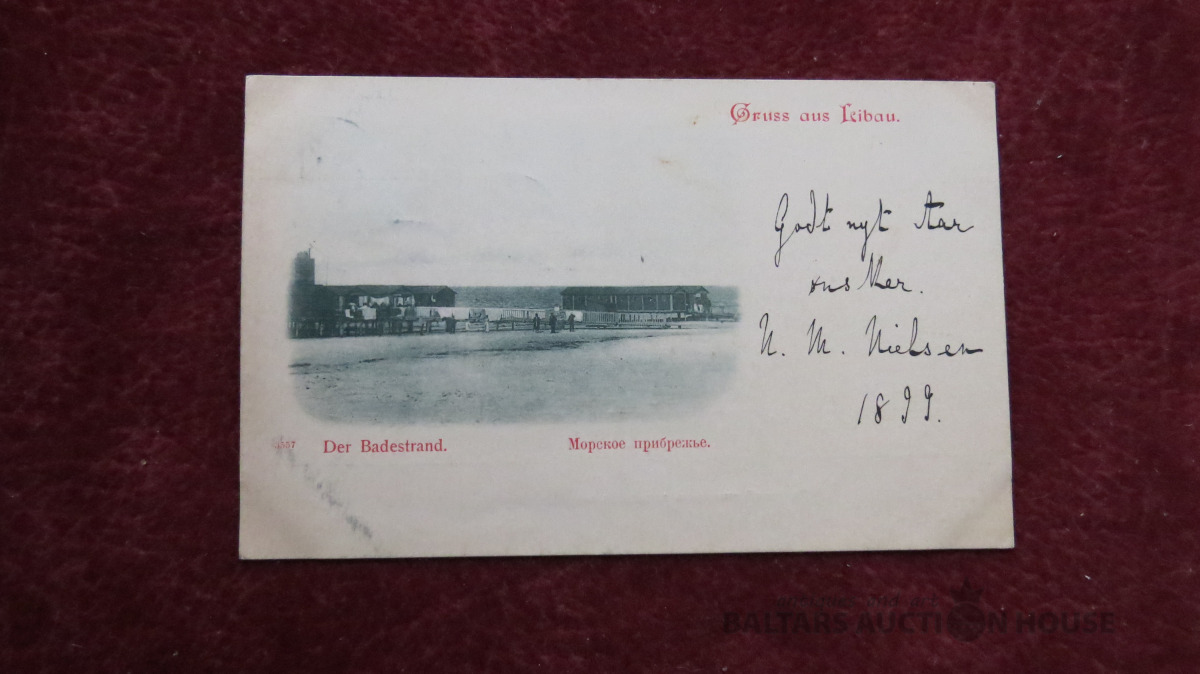 Gruss aus Libau.
Godt nyt Aar
ønsker.
N. M. Nielsen
1899.
Der Badestrand.
Морское прибрежье.
BALTARS AUCTION HOUSE